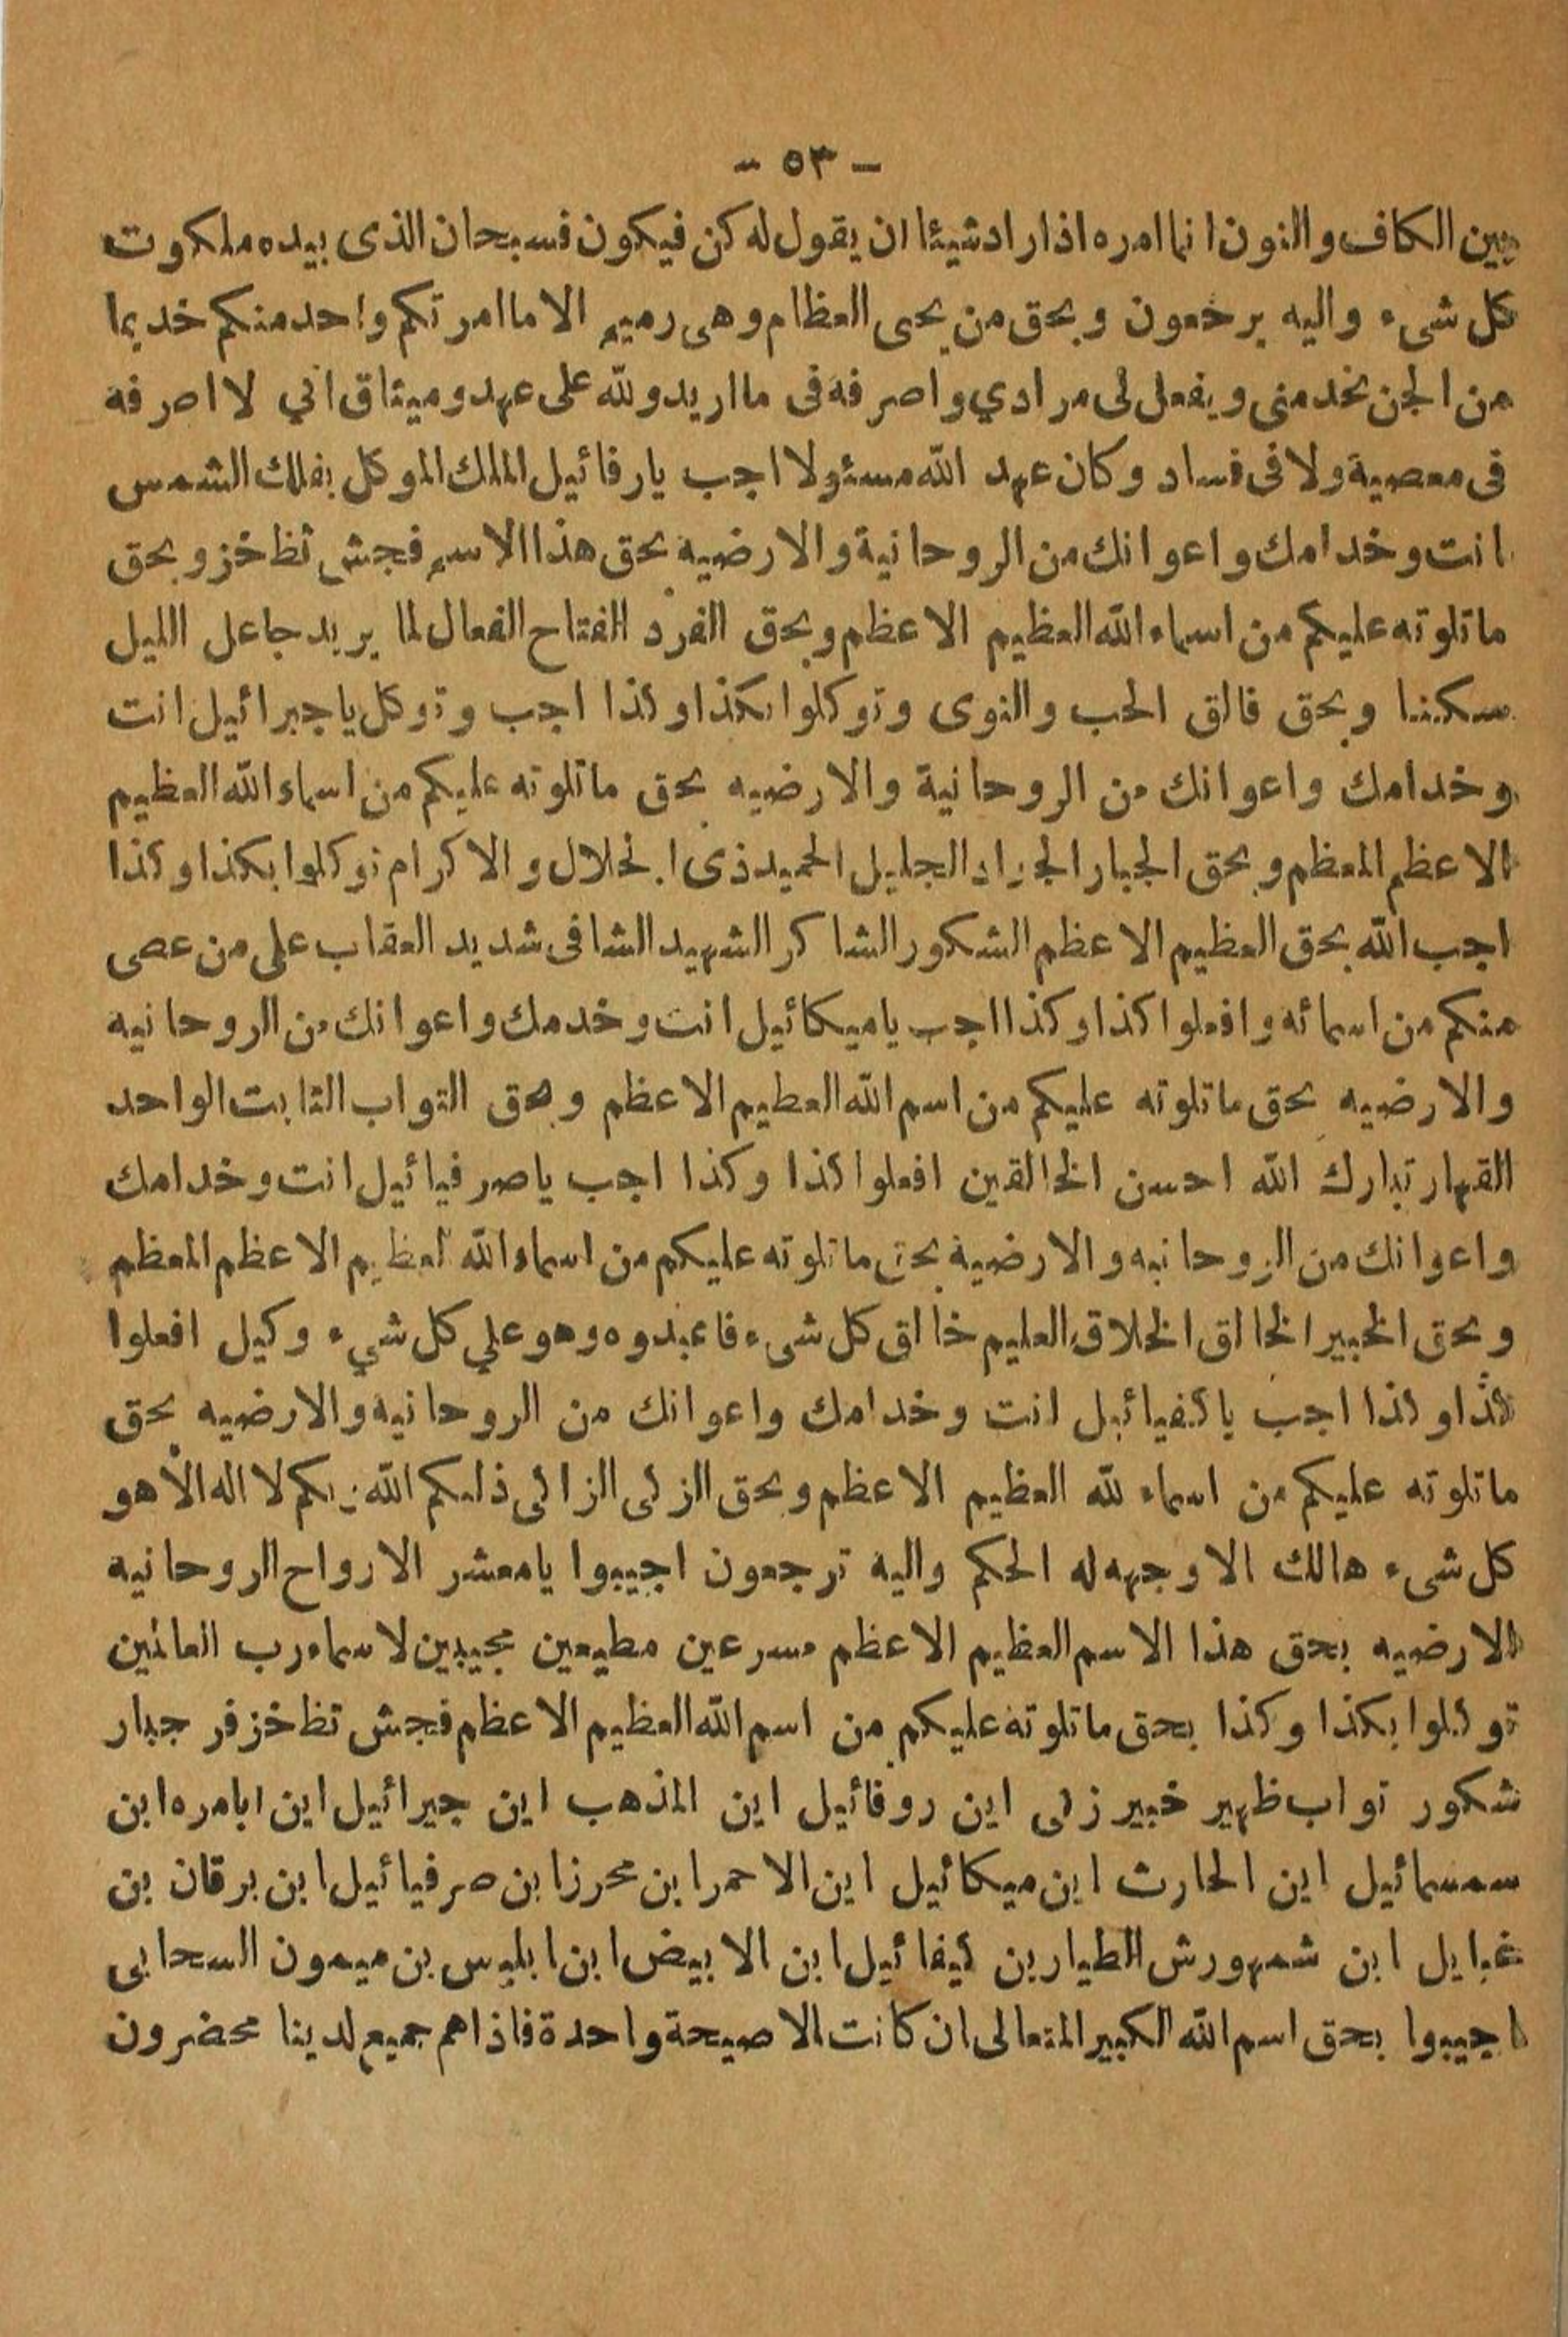 - ٥٣ -
بين الكاف والنون انما امره اذا اراد شيئا ان يقول له كن فيكون فسبحان الذى بيده ملكوت
كل شىء واليه يرجعون وبحق من يحى العظام وهى رميم الا ما امرتكم واحد منكم خديما
من الجن يخدمنى ويفعل لى مرادي واصرفه فى ما اريد ولله على عهد وميثاق اني لا اصرفه
فى معصية ولا فى فساد وكان عهد الله مسئولا اجب يا رفائيل الملك الموكل بفلك الشمس
انت وخدامك واعوانك من الروحانية والارضيه بحق هذا الاسم فجش ثظ خز وبحق
ما تلوته عليكم من اسماء الله العظيم الاعظم وبحق الفرد الفتاح الفعال لما يريد جاعل الليل
سكننا وبحق فالق الحب والنوى وتوكلوا بكذا وكذا اجب وتوكل يا جبرائيل انت
وخدامك واعوانك من الروحانية والارضيه بحق ما تلوته عليكم من اسماء الله العظيم
الاعظم المعظم وبحق الجبار الجواد الجليل الحميد ذى الجلال والاكرام توكلوا بكذا وكذا
اجب الله بحق العظيم الاعظم الشكور الشاكر الشهيد الشافى شديد العقاب على من عصى
منكم من اسمائه وافعلوا كذا وكذا اجب يا ميكائيل انت وخدمك واعوانك من الروحانيه
والارضيه بحق ما تلوته عليكم من اسم الله العطيم الاعظم وبحق التواب الثابت الواحد
القهار تبارك الله احسن الخالقين افعلوا كذا وكذا اجب يا صرفيائيل انت وخدامك
واعوانك من الروحانيه والارضية بحق ما تلوته عليكم من اسماء الله العظيم الاعظم المعظم
وبحق الخبير الخالق الخلاق العليم خالق كل شىء فاعبدوه وهو علي كل شيء وكيل افعلوا
كذا وكذا اجب يا كفيائيل انت وخدامك واعوانك من الروحانيه والارضيه بحق
ما تلوته عليكم من اسماء لله العظيم الاعظم وبحق الزكى الزاكى ذلكم الله ربكم لا اله الا هو
كل شىء هالك الا وجهه له الحكم واليه ترجعون اجيبوا يا معشر الارواح الروحانيه
الارضيه بحق هذا الاسم العظيم الاعظم مسرعين مطيعين مجيبين لاسماء رب العالمين
توكلوا بكذا وكذا بحق ما تلوته عليكم من اسم الله العظيم الاعظم فجش تظ خز فر جبار
شكور تواب ظهير خبير زكى اين روفائيل اين المذهب اين جبرائيل اين ابا مره ابن
سمسمائيل اين الحارث اين ميكائيل اين الاحمر ابن محرز ابن صرفيائيل ابن برقان بن
غبايل ابن شمهورش الطيار بن كيفائيل ابن الابيض ابن ابليس بن ميمون السحابى
اجيبوا بحق اسم الله الكبير المتعالى ان كانت الا صيحة واحدة فاذا هم جميع لدينا محضرون